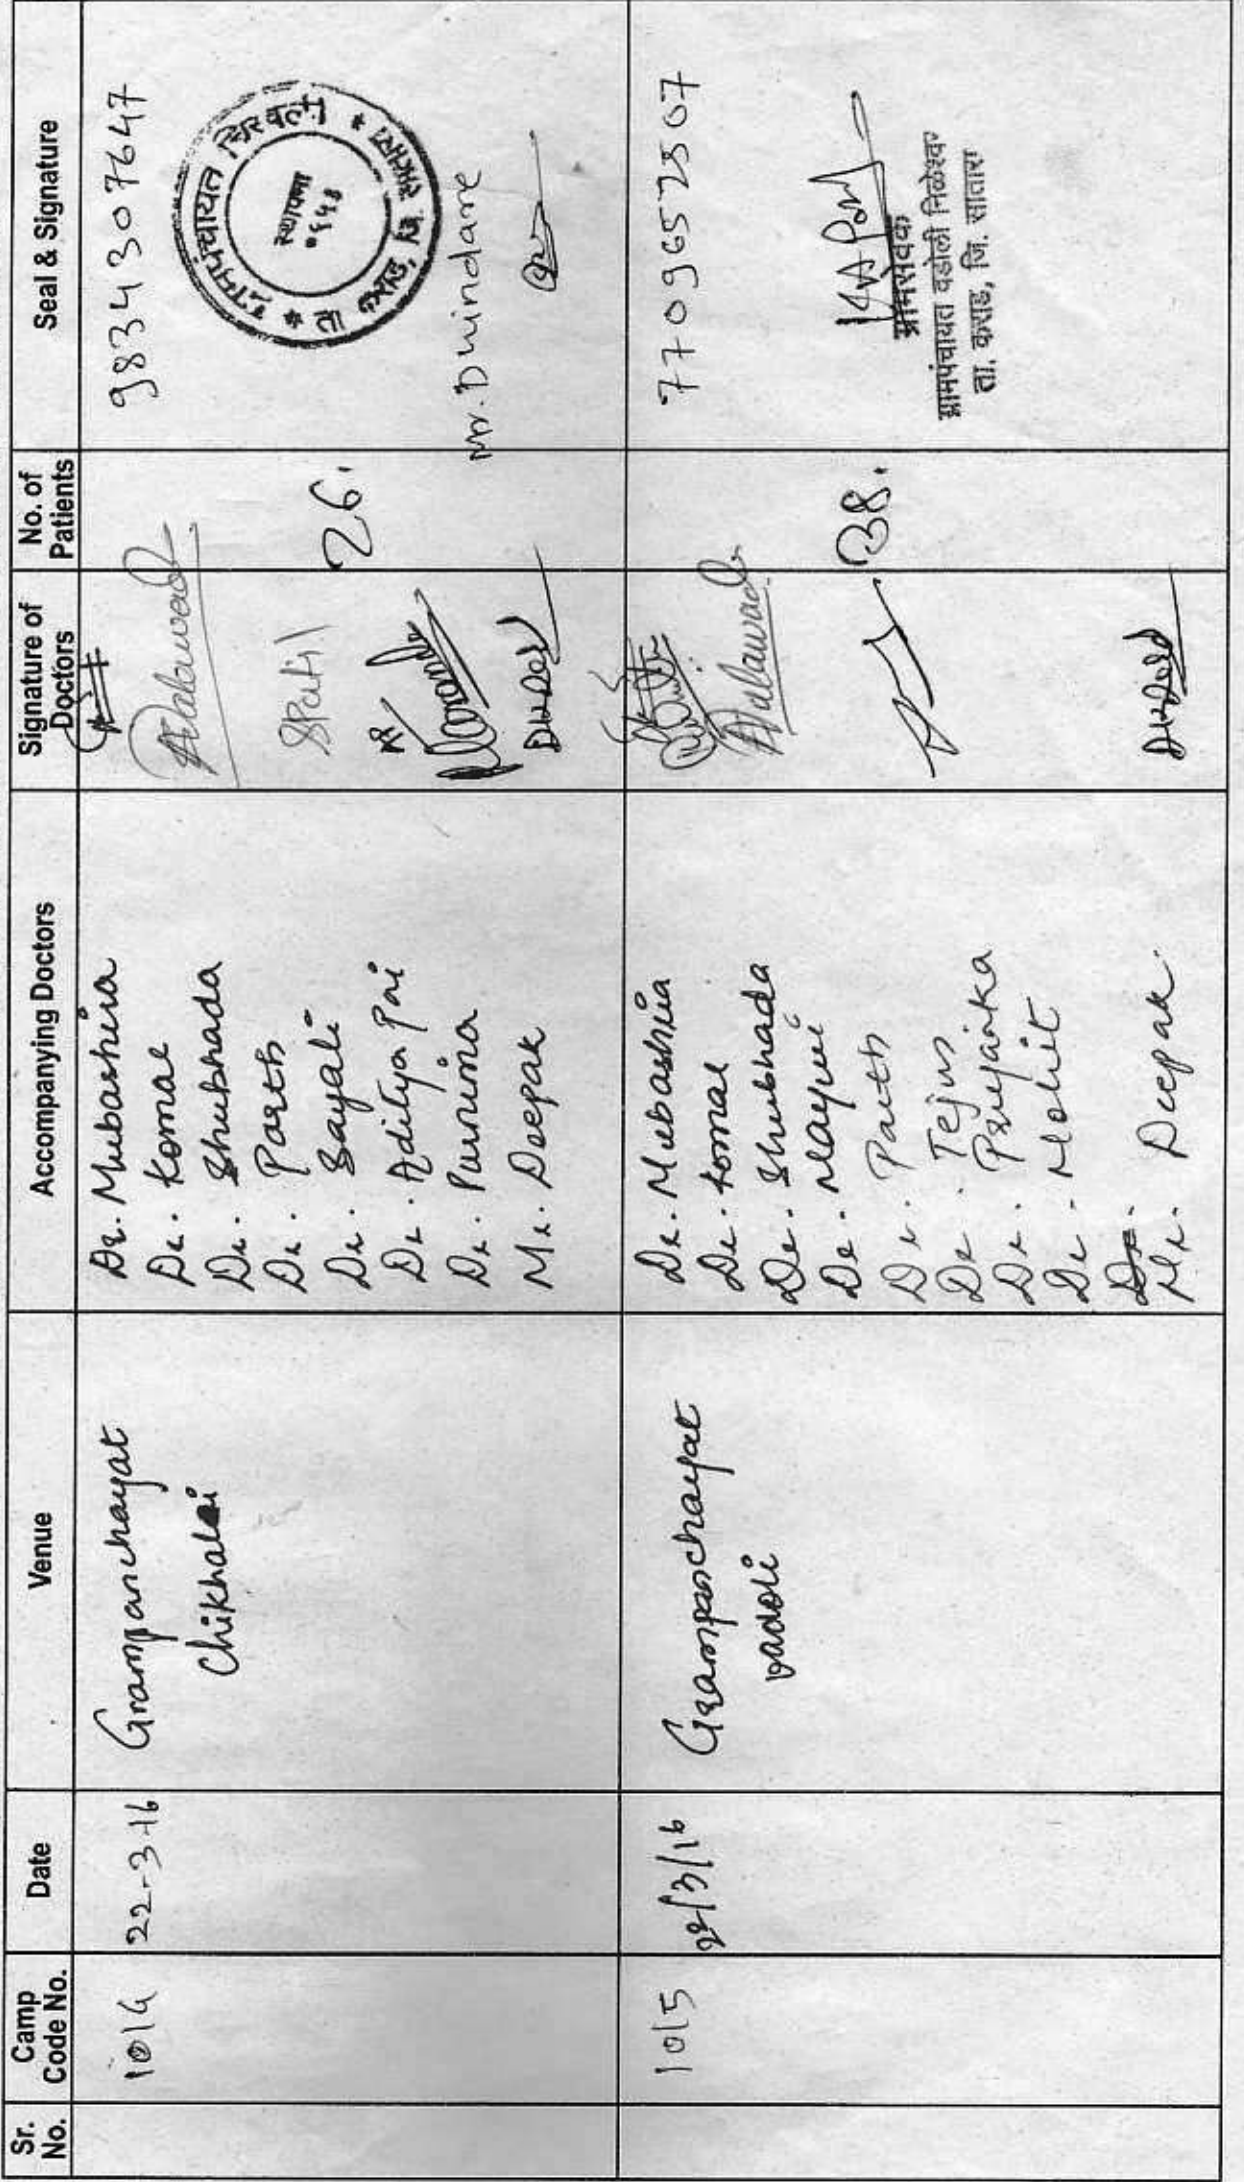 Sr. No.
Camp Code No.
Date
Venue
Accompanying Doctors
Signature of Doctors
No. of Patients
Seal & Signature
1014
22-3-16
Grampanchayat
Chikhali
Dr. Mubashira
Dr. Komal
Dr. Shubhada
Dr. Parth
Dr. Sayali
Dr. Aditya Pai
Dr. Purnima
Mr. Deepak
SPatil
26.
9834307647
स्थापना
Mr. Dhindane
1015
22/3/16
Grampanchayat
Vadoli
Dr. Mubashira
Dr. Komal
Dr. Shubhada
Dr. Mayuri
Dr. Parth
Dr. Tejus
Dr. Priyanka
Dr. Mohit
Mr. Deepak.
38.
7709652507
ग्रामसेवक
ग्रामपंचायत वडोली निळेश्वर
ता. कराड, जि. सातारा